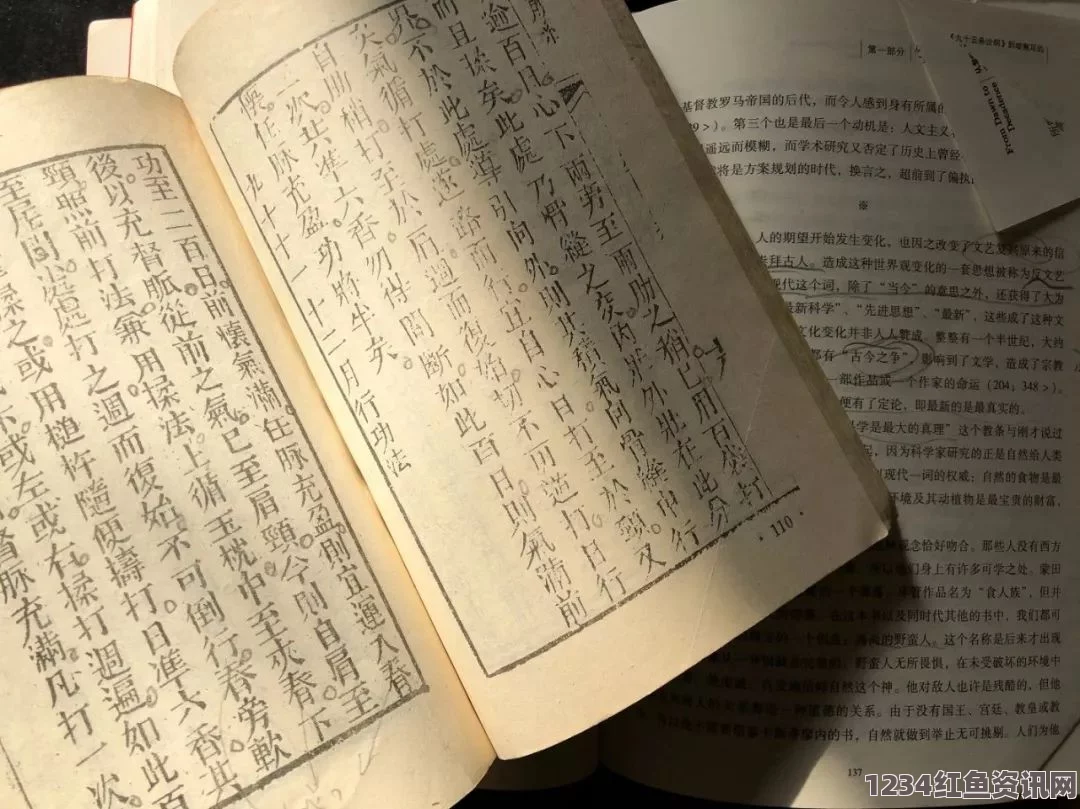 前亦
逾百日心下兩旁至兩肋之稍已用百袋打
而且揉矣此處乃骨縫之交內壯外壯在此分
界不於此處導引向外則其積氣向骨縫中行
矣氣循打處逐路而行止自心口打至於頸又
自肋稍打至於肩週而復始切不可逆打日行
一次共準六香勿得間斷如此百日則氣滿前
懷任脈充盈功將半矣
九十十一十二月行功法
110
功至二百日前懷氣滿任脈充盈則宜運入脊
後以充督脈從前之氣已至肩頸今則自肩至
頸照前打法兼用揉法上循玉枕中至夾脊下
至尾閭處處打之週而復始不可倒行脊旁軟
揉之或用槌杵隨便擣打日準六香共
或左或右揉打週遍如此百
督脈充滿凡打一次
《九十五条论纲》到
From Dawn to
Decadence
第一部分
基督教罗马帝国的后代,而令人感到身有所属的
第三个也是最后一个动机是:人文主义
遥远而模糊,而学术研究又否定了历史上曾经
将是方案规划的时代,换言之,超前到了偏执
※
人的期望开始发生变化,也因之改变了文艺复兴原来的信
崇拜古人。造成这种世界观变化的一套思想被称为反文艺
现代这个词,除了“当今”的意思之外,还获得了大为
最新科学”、“先进思想”、“最新”,这些成了这种文
文化变化并非人人赞成,整整有一个半世纪,大约
都有“古今之争”,影响到了文学,造成了宗教
一部作品或一个作家的命运(204;348>)。
便有了定论,即最新的是最真实的。
学是最大的真理”这个教条与刚才说过
因为科学家研究的正是自然给人类
现代一词的权威;自然的食物是最
环境及其动植物是最宝贵的财富,
观念恰好吻合。那些人没有西方
们身上有许多可学之处。蒙田
作品名为“食人族”,但并
以及同时代其他的书中,我们都可
高尚的野蛮人。这个名称是后来才出现
野蛮人无所畏惧,在未受破坏的环境中
自然这个神。他对敌人也许是残酷的,但他
道德的关系。由于没有国王、宫廷、教皇或教
内的书,自然就做到举止无可挑剔。人们为他
137
1234红鱼资讯网